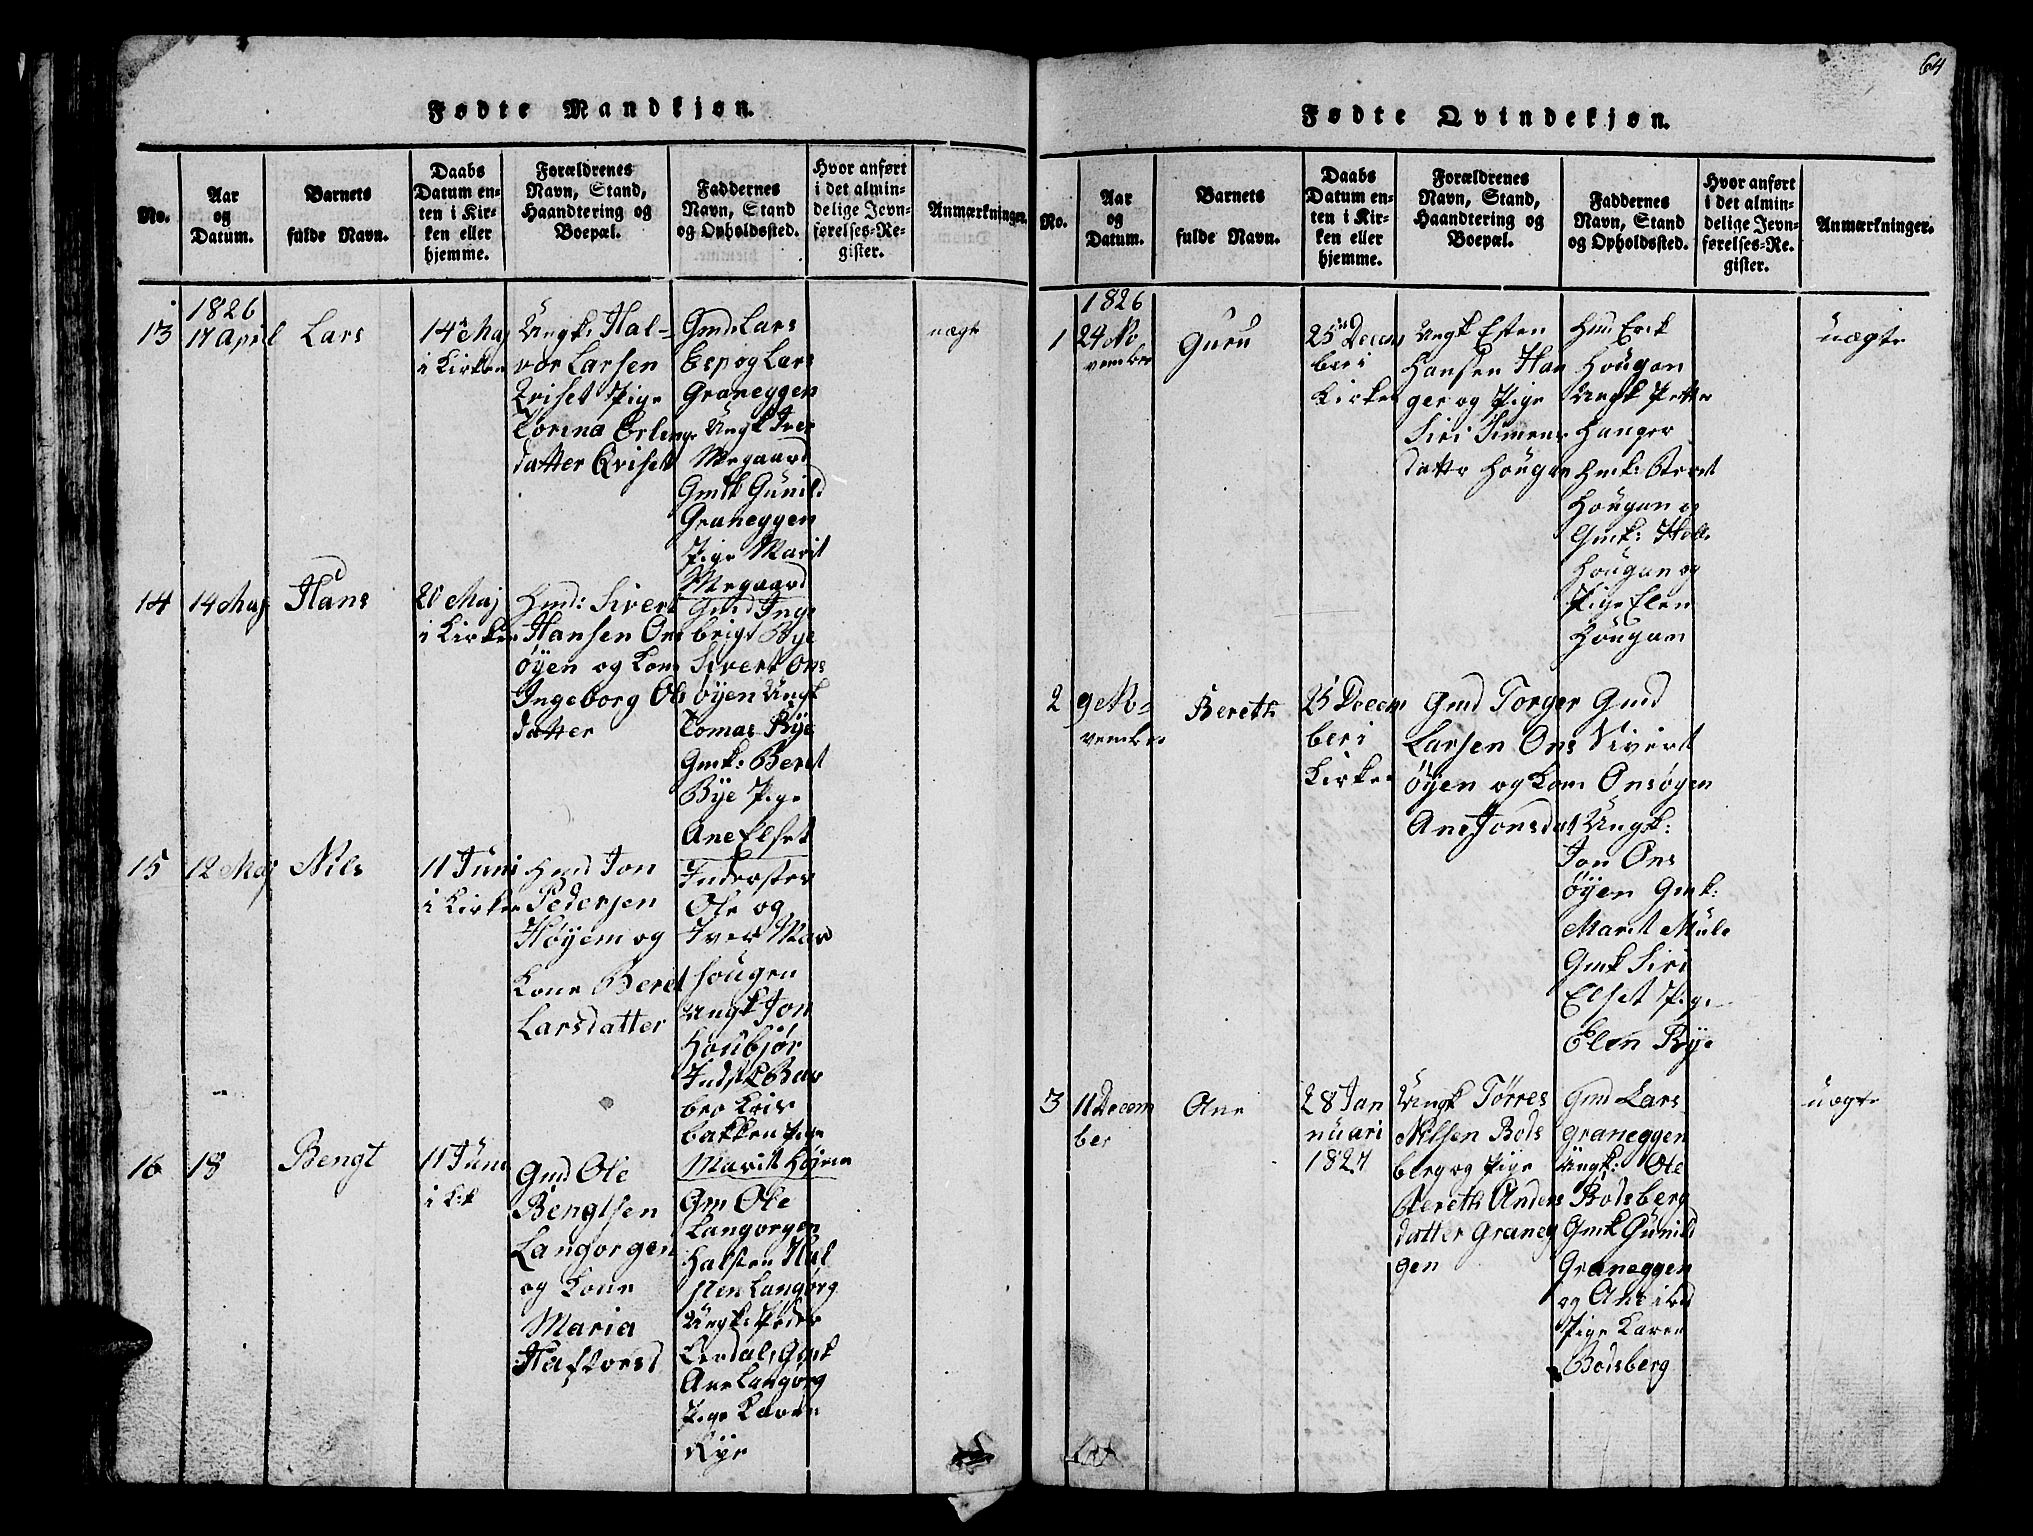 64
Fødte Mandkjøn.
No.
Aar
og
Datum.
Barnets
fulde Navn.
Daabs
Datum en-
ten i Kir-
ken eller
hjemme.
Forældrenes
Navn, Stand,
Haandtering og
Boepæl.
Faddernes
Navn, Stand
og Opholdssted.
Hvor anført
i det almin-
delige Jevn-
førelses-Re-
gister.
Anmærkninger.
1826
13
17 April
Lars
14de Maj
i Kirken
Ungk: Hal-
vor Larsen
Qviset Pige
Torina Erlings
datter Qviset
Gmd Lars
Esp og Lars
Graneggen
Ungk Iver
Megaard
Gmdk Gunild
Graneggen
Pige Marit
Megaard
uægte
14
14 Maj
Hans
21 Maj
i Kirken
Hmd: Sivert
Hansen Ons
øyen og Kone
Ingeborg Ols
datter
Gmd Inge
brigt Bye
Sivert Ons
øyen Ungk
Tomas Bye
Gmk: Beret
Bye Pige
Ane Elset
15
12 Maj
Nils
11 Juni
i Kirken
Hmd Jon
Pedersen
Høyem og
Kone Beret
Larsdatter
Inderster
Ole og
Iver Mar
hougen
Ungk Jon
Houbjør
Indstk Bar
bro Kris
bakken Pige
Marit Høyem
16
18
Bengt
11 Juni
i Kk
Gmd Ole
Bengtsen
Langorgen
og Kone
Maria
Haftorsd
Gm Ole
Langorgen
Halsten Hal
sten Langørg
Ungk: Peder
Gmk
Ane Langørg
Pige Karen
Rye
Fødte Qvindekjøn.
No.
Aar
og
Datum.
Barnets
fulde Navn.
Daabs
Datum en-
ten i Kir-
ken eller
hjemme.
Forældrenes
Navn, Stand,
Haandtering og
Boepæl.
Faddernes
Navn, Stand
og Opholdssted.
Hvor anført
i det almin-
delige Jevn-
førelses-Re-
gister.
Anmærkninger.
1826
1
24 No
vember
Guru
25 Decem
ber i
Kirken
Ungk Esten
Hansen Han
ger og Pige
Siri Simens
datter Hougan
Hmd Erik
Hougan
Ungk Petter
Hanger
Hmk: Beret
Hougan og
Gmk:
Hougan og
Pige Elen
Hougan
uægte
2
9 No
vember
Bereth
25 Decem
ber i
Kirken
Gmd Torger
Larsen Ons
øyen og Kone
Ane Jonsdat
Gmd
Sivert
Onsøyen
Ungk:
Jon Ons
øyen Gmk:
Maret Mule
Gmk Siri
Elset Pige
Elen Bye
3
11 Decem
ber
Ane
28 Jan
nuari
1827
Ungk Tørres
Nilsen Bods
berg og Pige
Bereth Anders
datter Graneg
gen
Gmd Lars
Graneggen
Ungk: Ole
Bodsberg
Gmk Gunild
Graneggen
og Ane ibd
Pige Karen
Bodsberg
uægte